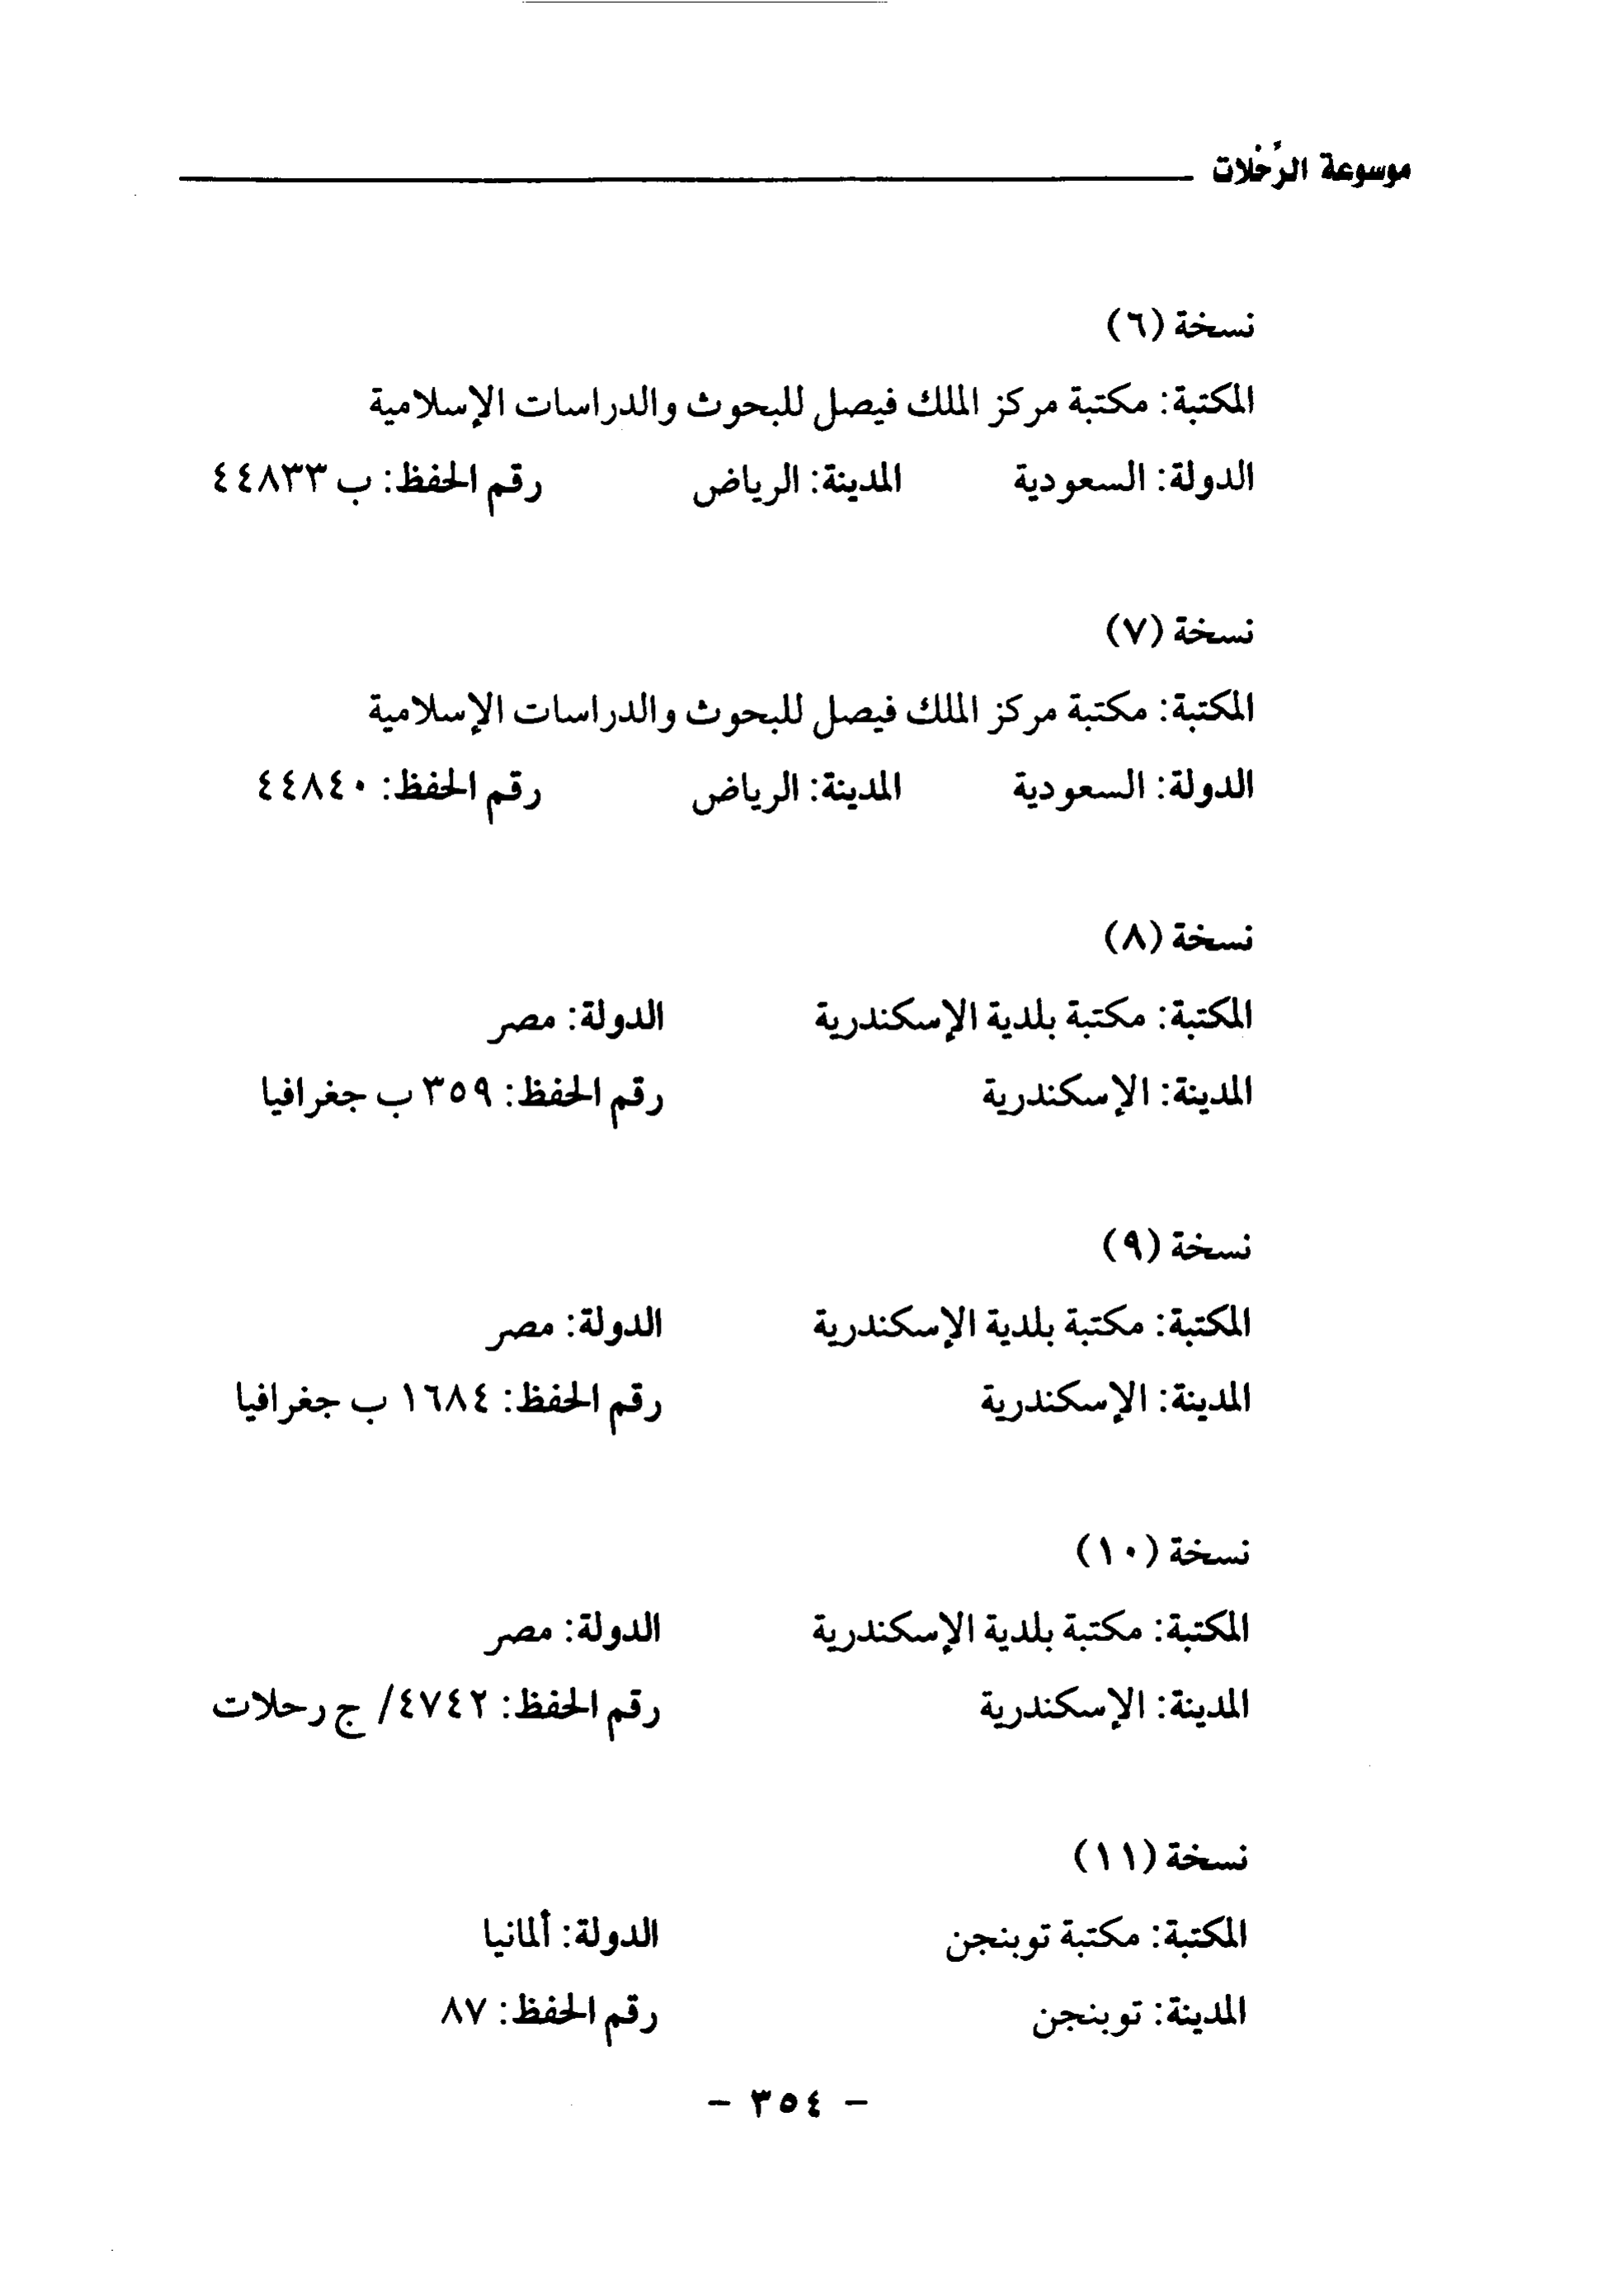 موسوعة الرِّحْلات
نسخة (٦)
المكتبة: مكتبة مركز الملك فيصل للبحوث والدراسات الإسلامية
الدولة: السعودية المدينة: الرياض رقم الحفظ: ب ٤٤٨٣٣
نسخة (٧)
المكتبة: مكتبة مركز الملك فيصل للبحوث والدراسات الإسلامية
الدولة: السعودية المدينة: الرياض رقم الحفظ: ٤٤٨٤٠
نسخة (٨)
المكتبة: مكتبة بلدية الإسكندرية الدولة: مصر
المدينة: الإسكندرية رقم الحفظ: ٣٥٩ ب جغرافيا
نسخة (٩)
المكتبة: مكتبة بلدية الإسكندرية الدولة: مصر
المدينة: الإسكندرية رقم الحفظ: ١٦٨٤ ب جغرافيا
نسخة (١٠)
المكتبة: مكتبة بلدية الإسكندرية الدولة: مصر
المدينة: الإسكندرية رقم الحفظ: ٤٧٤٢/ ج رحلات
نسخة (١١)
المكتبة: مكتبة توبنجن الدولة: ألمانيا
المدينة: توبنجن رقم الحفظ: ٨٧
- ٣٥٤ -